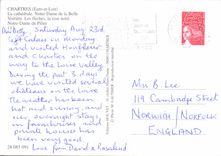 CHARTRES (Eure-et-Loir)
La cathédrale. Notre Dame de la Belle
Verrière. Les flèches, la rose nord.
Notre Dame du Pilier
Dear Betty Saturday Aug 23rd
Left Calais on Monday
and visited Honfleur
and Chartres on the
way to the Loire Valley.
During the past 3 days
we have visited several
châteaux on the Loire
The weather has been
hot and sunny and
our overnight stays
in farmhouses and
private houses has
been very good
Love from David & Rosalind
Mrs B. Lee
119 Cambridge Street
NORWICH / NORFOLK
ENGLAND
28 085 091